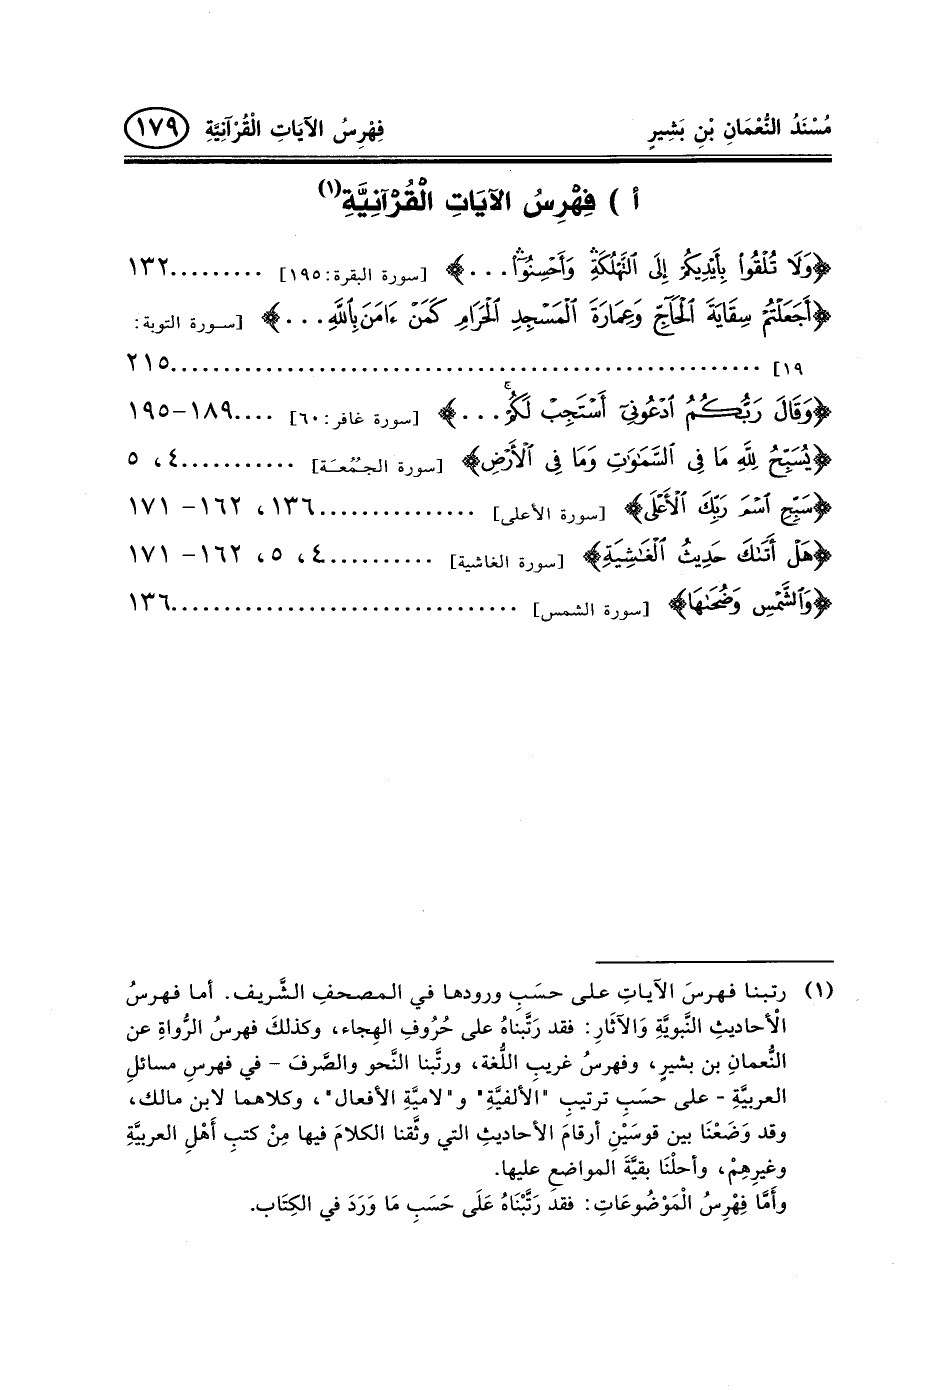 مُسْنَدُ النُّعْمَانِ بْنِ بَشِيرٍ فِهْرِسُ الآيَاتِ الْقُرْآنِيَّةِ ١٧٩
أ ) فِهْرِسُ الآيَاتِ الْقُرْآنِيَّةِ(١)
﴿وَلَا تُلْقُوا۟ بِأَيْدِيكُمْ إِلَى ٱلتَّهْلُكَةِ ۛ وَأَحْسِنُوٓا۟ ۛ ...﴾ [سورة البقرة: ١٩٥] .........١٣٢
﴿أَجَعَلْتُمْ سِقَايَةَ ٱلْحَآجِّ وَعِمَارَةَ ٱلْمَسْجِدِ ٱلْحَرَامِ كَمَنْ ءَامَنَ بِٱللَّهِ ...﴾ [سورة التوبة:
١٩] ......................................................٢١٥
﴿وَقَالَ رَبُّكُمُ ٱدْعُونِىٓ أَسْتَجِبْ لَكُمْ ۚ ...﴾ [سورة غافر: ٦٠] ....١٨٩-١٩٥
﴿يُسَبِّحُ لِلَّهِ مَا فِى ٱلسَّمَٰوَٰتِ وَمَا فِى ٱلْأَرْضِ﴾ [سورة الجُمُعَة] ...........٤، ٥
﴿سَبِّحِ ٱسْمَ رَبِّكَ ٱلْأَعْلَى﴾ [سورة الأعلى] ...............١٣٦، ١٦٢- ١٧١
﴿هَلْ أَتَىٰكَ حَدِيثُ ٱلْغَٰشِيَةِ﴾ [سورة الغاشية] ..........٤، ٥، ١٦٢- ١٧١
﴿وَٱلشَّمْسِ وَضُحَىٰهَا﴾ [سورة الشمس] ................................١٣٦
(١) رتبنا فهرسَ الآياتِ على حسَبِ ورودها في المصحفِ الشَّريف. أما فهرسُ
الْأحاديثِ النَّبويَّةِ وَالآثَارِ: فقد رَتَّبناهُ على حُرُوفِ الهِجاء، وكذلكَ فهرسُ الرُّواةِ عن
النُّعمانِ بن بشيرٍ، وفهرسُ غريبِ اللُّغة، ورتَّبنا النَّحو والصَّرفَ - في فهرسِ مسائلِ
العربيَّةِ - على حسَبِ ترتيبِ "الألفيَّةِ" و"لاميَّةِ الأفعال"، وكلاهما لابن مالك،
وقد وَضَعْنَا بين قوسَيْنِ أرقامَ الأحاديثِ التي وثَّقنا الكلامَ فيها مِنْ كتبِ أهْلِ العربيَّةِ
وغيرِهِمْ، وأحلْنَا بقيَّةَ المواضعِ عليها.
وأمَّا فِهْرِسُ الْمَوْضُوعَاتِ: فقد رَتَّبْنَاهُ عَلَى حَسَبِ مَا وَرَدَ في الكِتَاب.